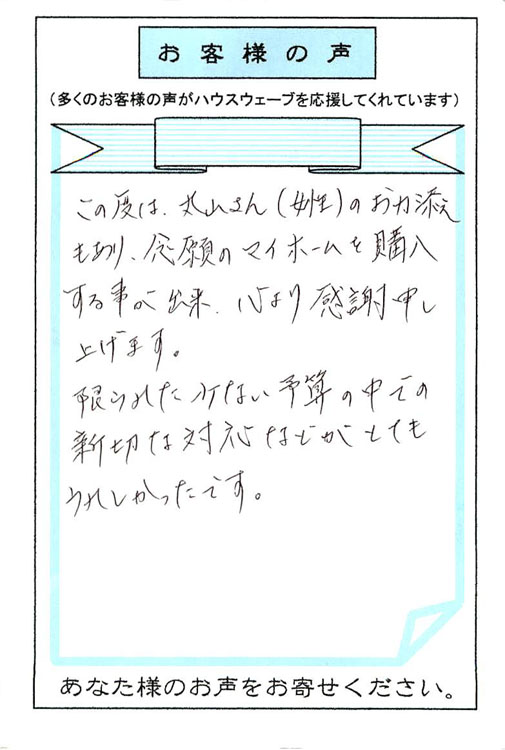 お客様の声
(多くのお客様の声がハウスウェーブを応援してくれています)
この度は、丸山さん(女性)のお力添え
もあり、念願のマイホームを購入
する事が出来、心より感謝申し
上げます。
限られた少ない予算の中での
新切な対応などがとても
うれしかったです。
あなた様のお声をお寄せください。